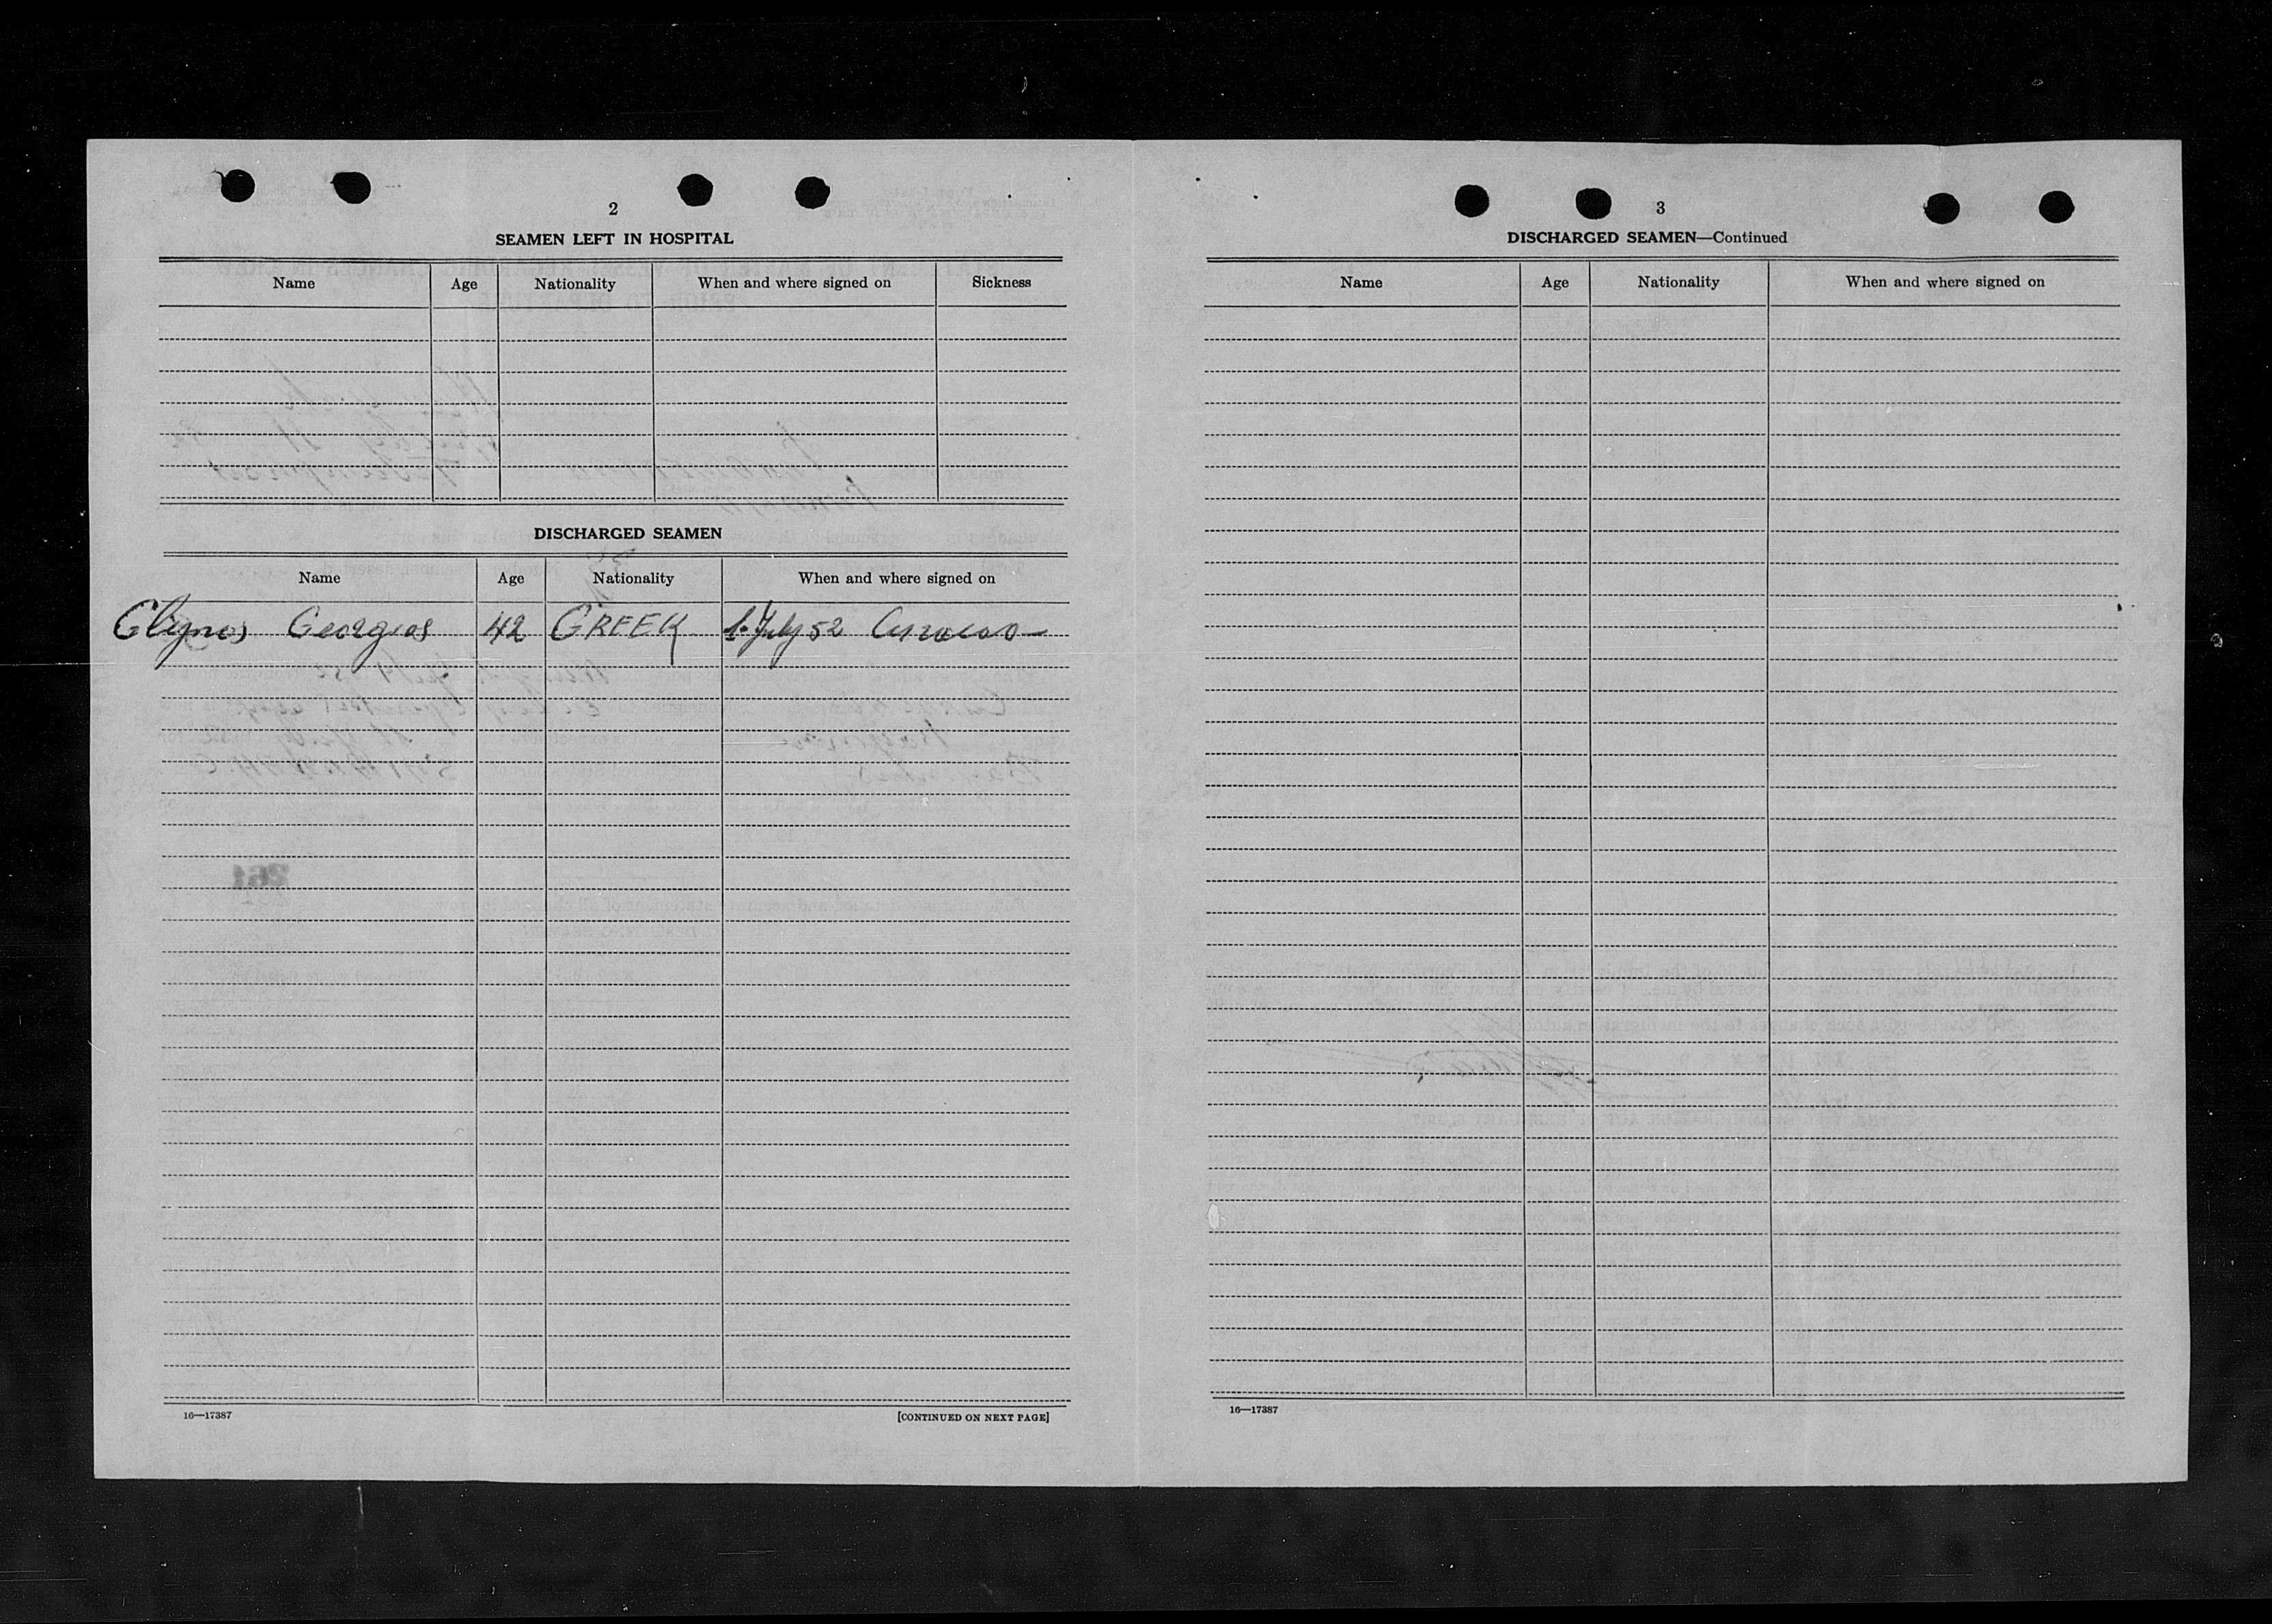 2
SEAMEN LEFT IN HOSPITAL
Name Age Nationality When and where signed on Sickness
DISCHARGED SEAMEN
Name Age Nationality When and where signed on
Glynos Georgios 42 GREEK 1. July 52 Curacao
16—17387 [CONTINUED ON NEXT PAGE]
3
DISCHARGED SEAMEN—Continued
Name Age Nationality When and where signed on
16—17387